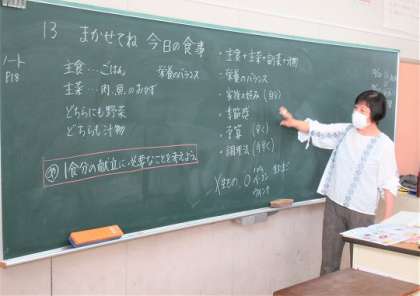 13 まかせてね 今日の食事
ノート
P18
主食…ごはん
主菜…肉、魚、のおかず
どちらにも野菜
どちらも汁物
栄養のバランス
め 1食分の献立に必要なことを考えよう。
・主食+主菜+副菜+汁物
・栄養のバランス
・家族の好み(自分)
・季節感
・予算(安く)
・調理法